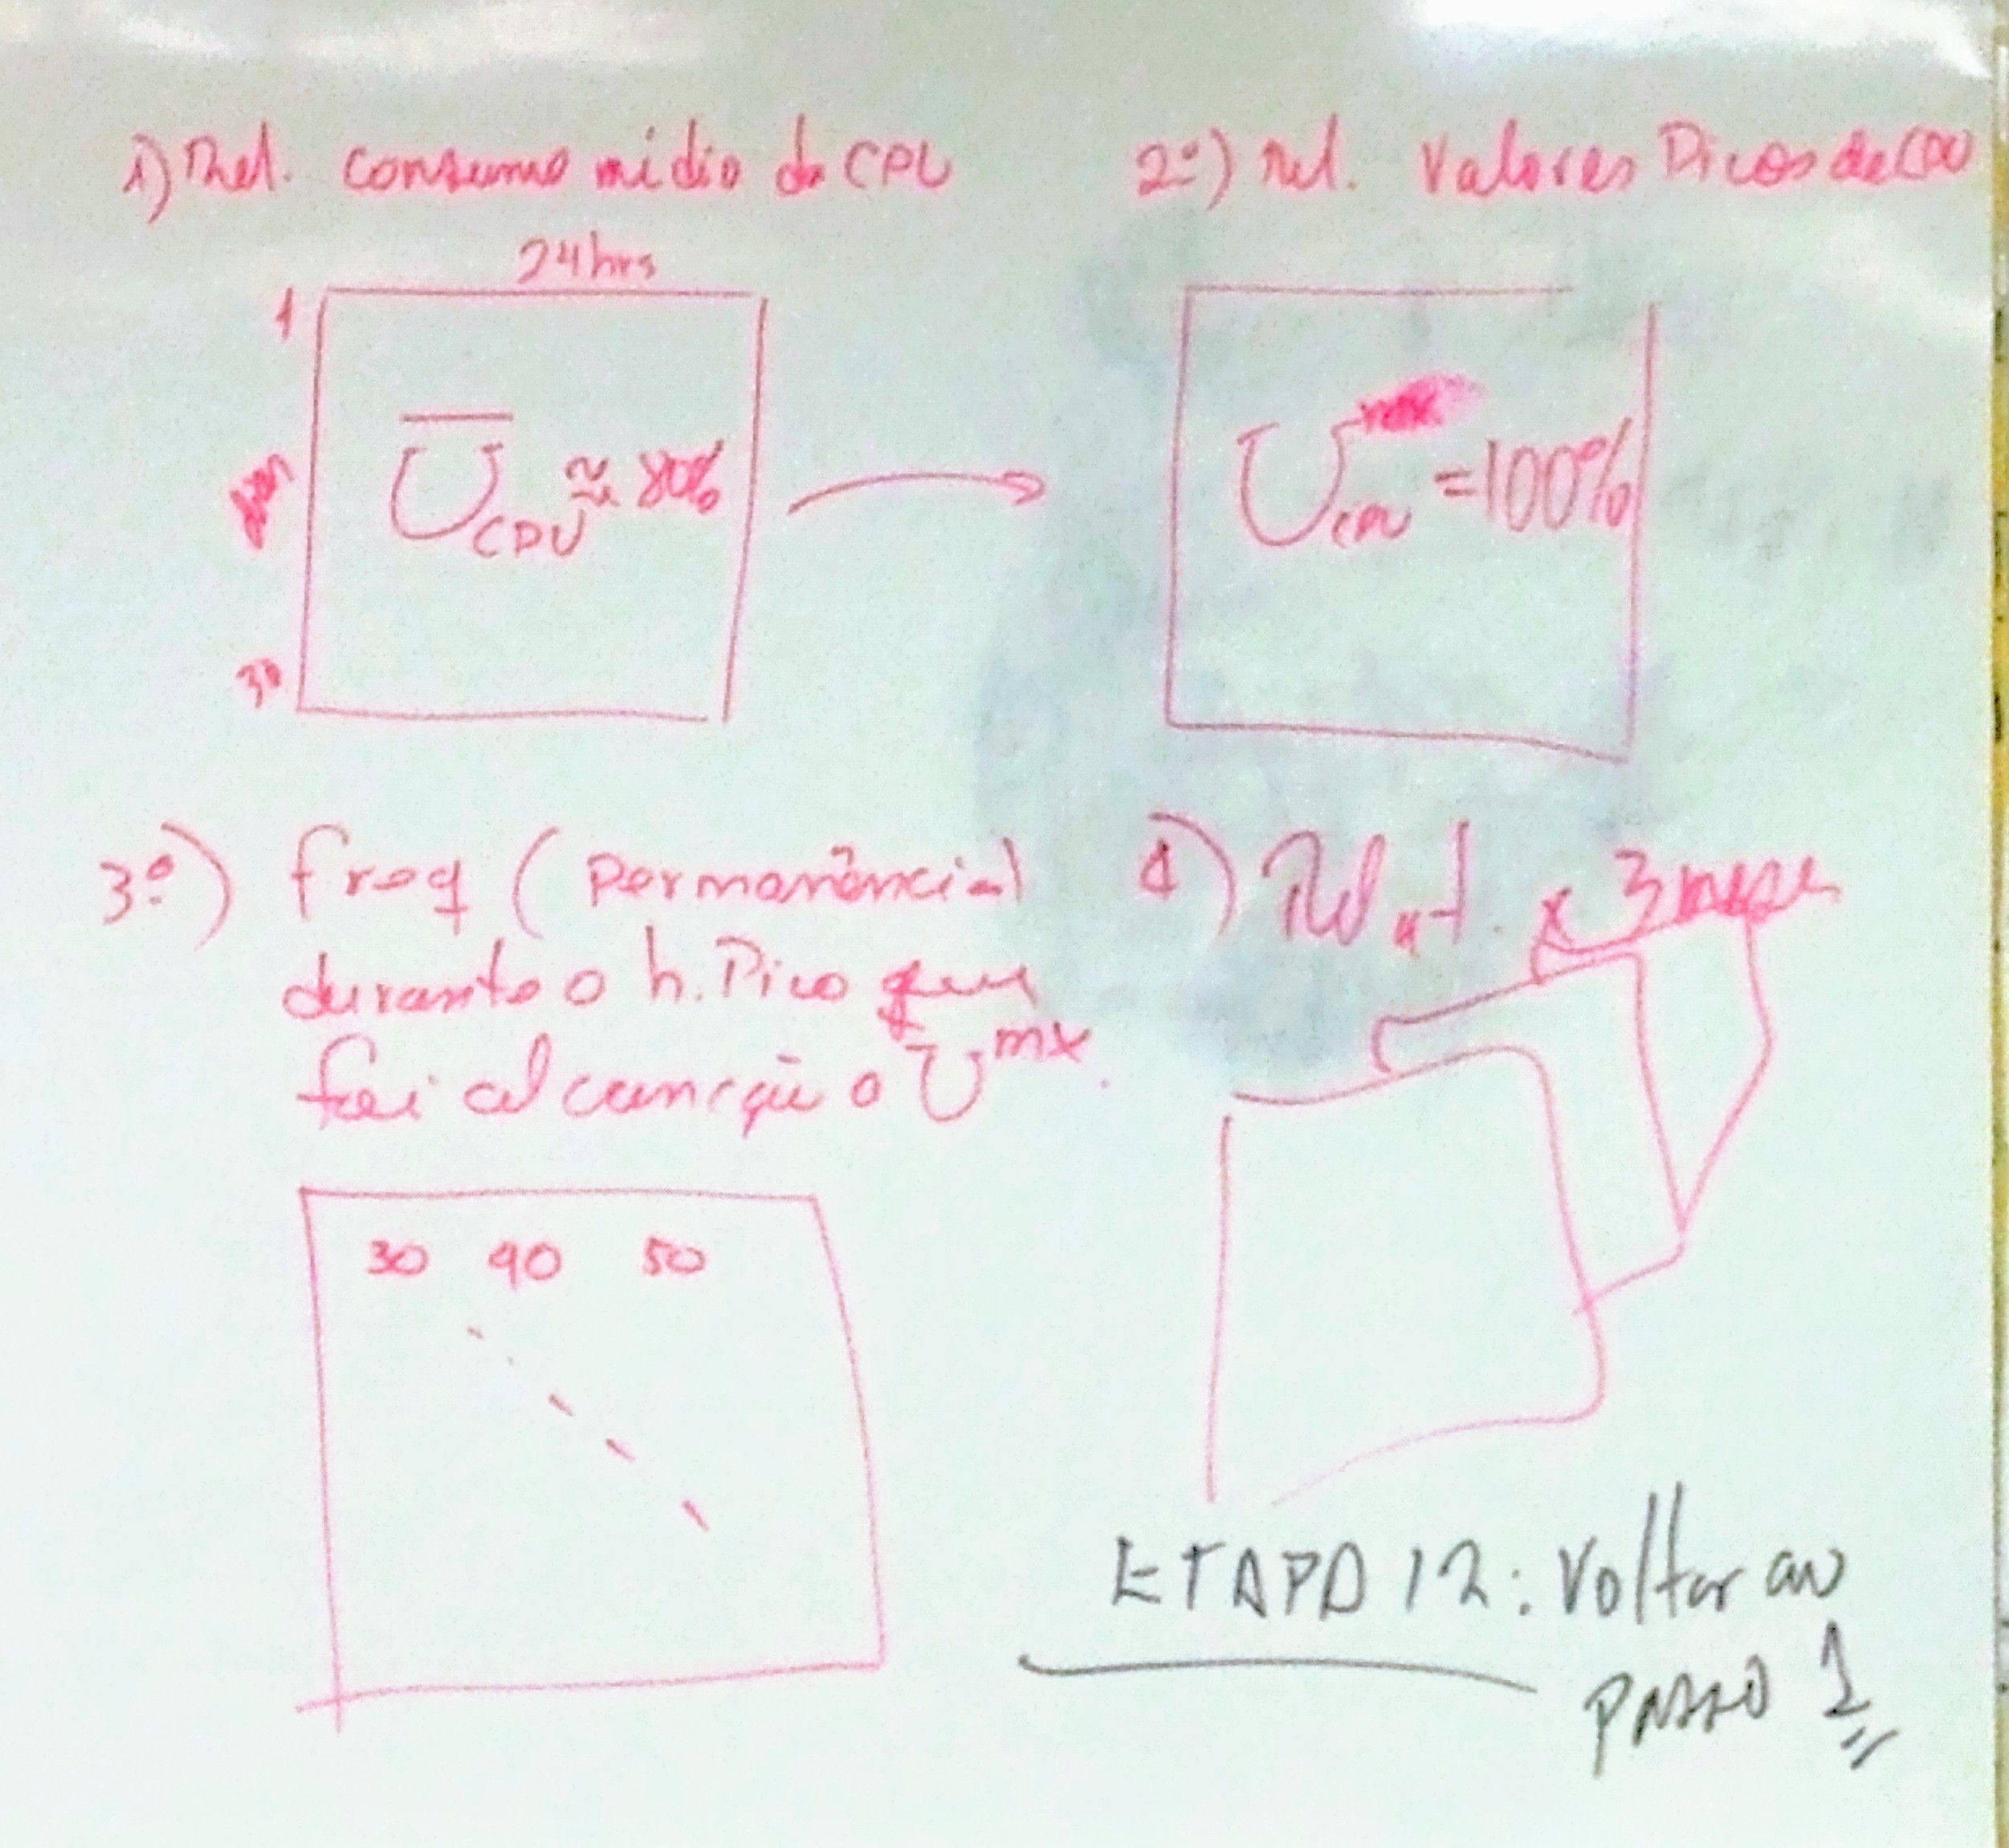 1) Rel. consumo médio de CPU
24hrs
1
30
U CPU ≈ 80%
2º) rel. Valores Picos de CPU
U max CPU = 100%
3º) freq (permanência)
durante o h. Pico que
foi al o U mx.
30 40 50
4) x 3 meses
ETAPA 12: Voltar ao
PASSO 1